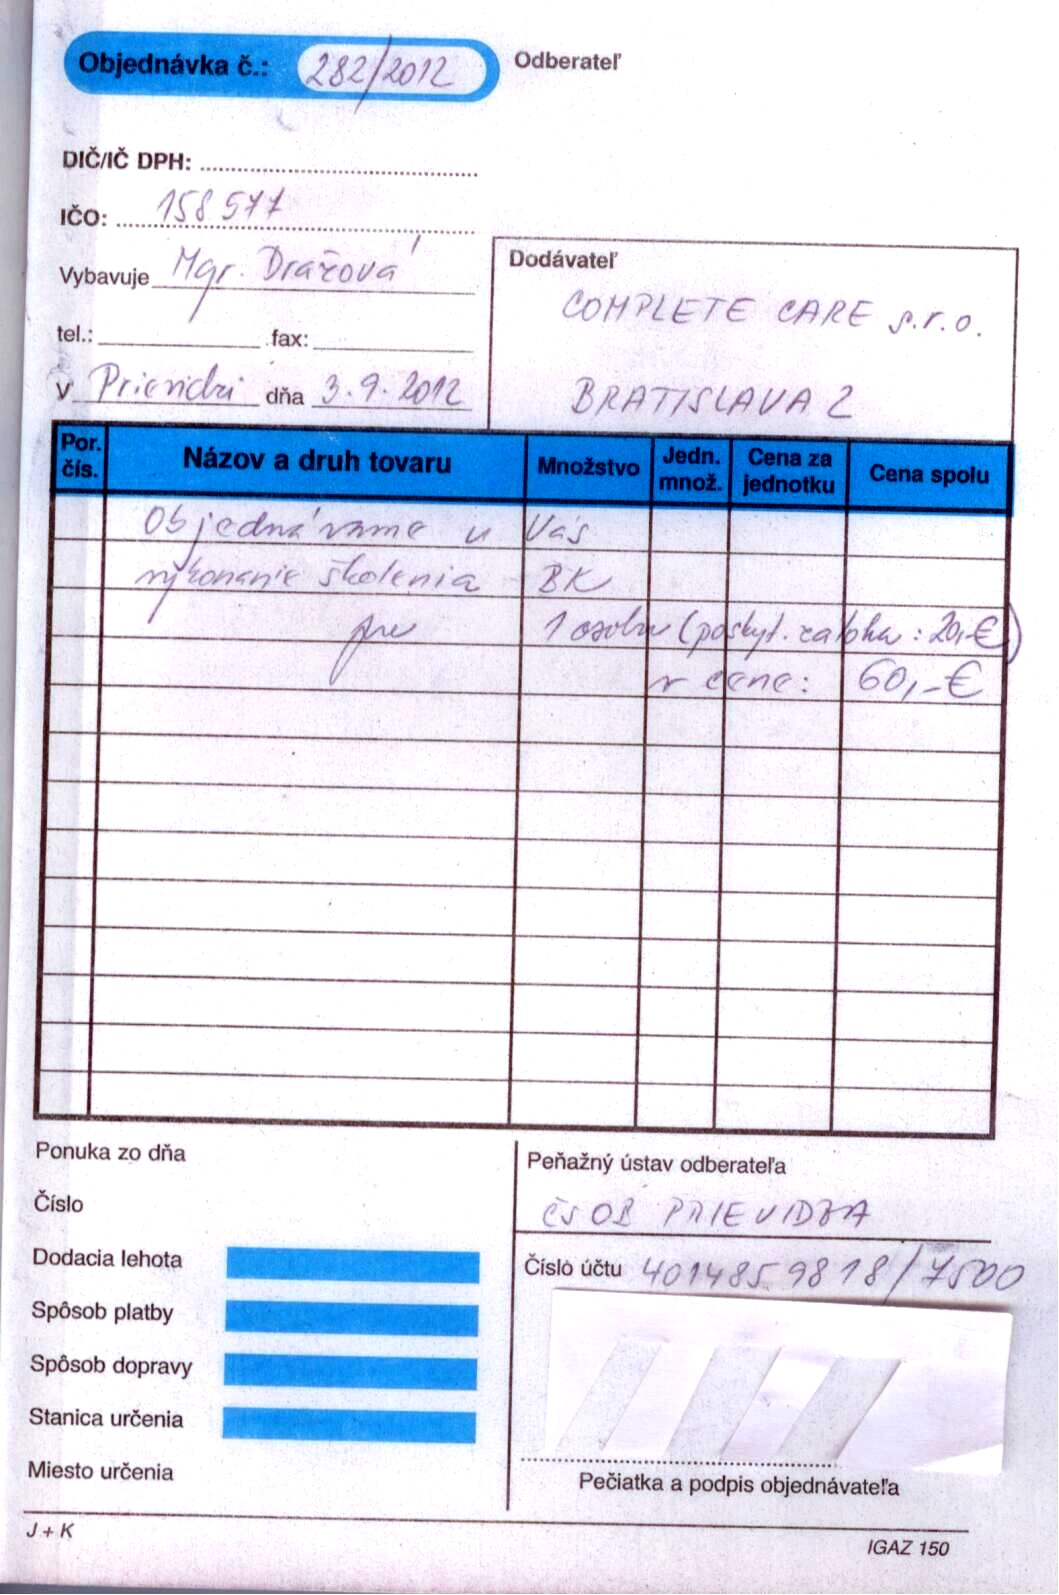 Objednávka č.: 282/2012
Odberateľ
DIČ/IČ DPH:
IČO: 158 577
Vybavuje Mgr. Dražová
tel.: fax:
V Prievidzi dňa 3.9.2012
Dodávateľ
COMPLETE CARE s.r.o.
BRATISLAVA 2
Por. čís. Názov a druh tovaru Množstvo Jedn. množ. Cena za jednotku Cena spolu
Objednávame u Vás
vykonanie školenia BK
pre 1 osobu (poskyt. záloha: 20,-€)
v cene: 60,-€
Ponuka zo dňa
Číslo
Dodacia lehota
Spôsob platby
Spôsob dopravy
Stanica určenia
Miesto určenia
Peňažný ústav odberateľa
ČSOB PRIEVIDZA
Číslo účtu 4014859818/7500
Pečiatka a podpis objednávateľa
J + K
IGAZ 150